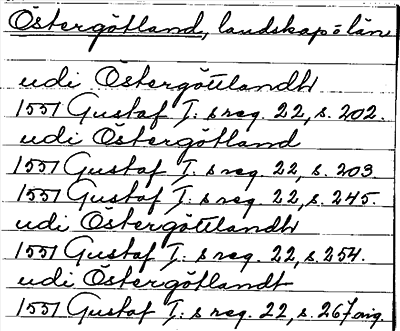 Östergötland, landskap o län
udi Östergöttlandh
1551 Gustaf I:s reg. 22, s. 202.
udi Östergötland
1551 Gustaf I:s reg. 22, s. 203
1551 Gustaf I:s reg. 22, s. 245.
udi Östergöttlandh
1551 Gustaf I:s reg. 22, s. 254.
udi Östergötlandt
1551 Gustaf I:s reg. 22, s. 267 orig.